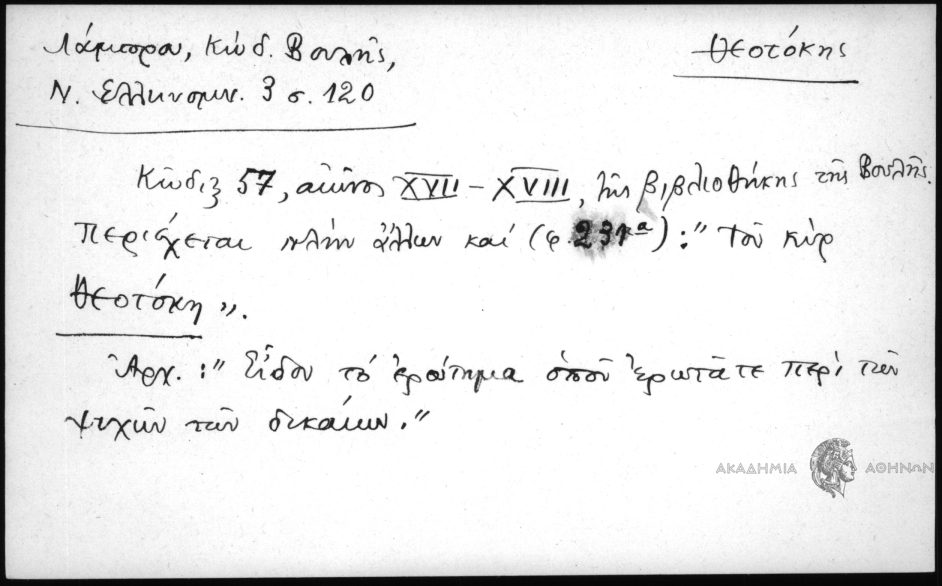 Λάμπρου, Κώδ. Βουλῆς,
Ν. Ἑλληνομν. 3 σ. 120
Θεοτόκης
Κῶδιξ 57, αἰῶνος XVII – XVIII, τῆς βιβλιοθήκης τῆς Βουλῆς.
Περιέχεται πλὴν ἄλλων καί (φ. 231α) : " Τοῦ κὺρ
Θεοτόκη ".
Ἀρχ. : " Εἶδον τὸ ἐρώτημα ὁποῦ ἐρωτᾶτε περὶ τῶν
ψυχῶν τῶν δικαίων. "
ΑΚΑΔΗΜΙΑ ΑΘΗΝΩΝ